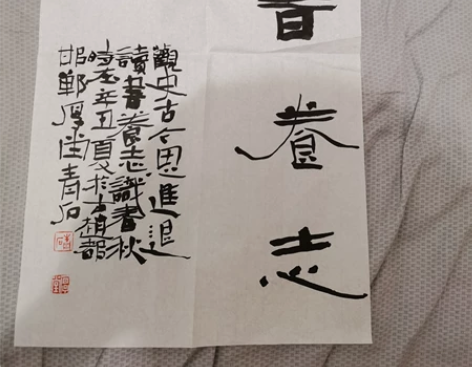 書養志
觀史古今思進退
讀書養志識春秋
時在辛丑夏於古趙都
邯鄲厚堂青石